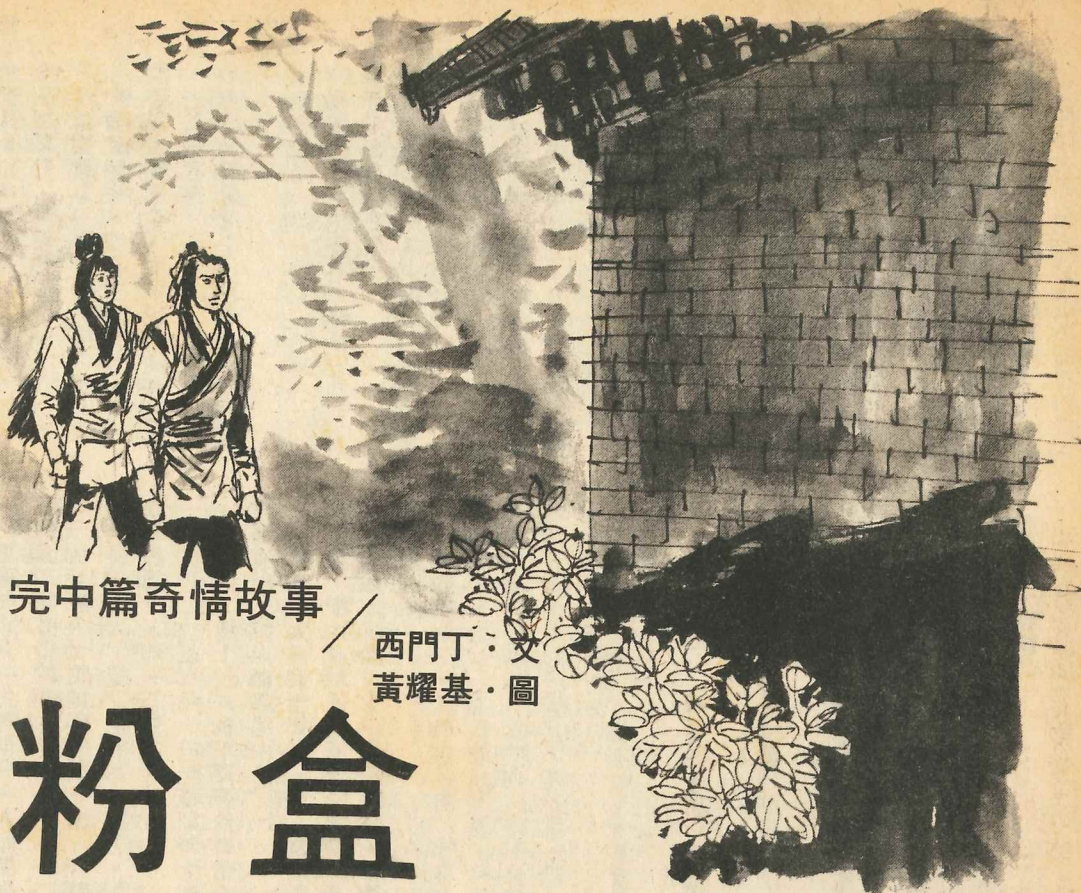 完中篇奇情故事
西門丁·文
黃耀基·圖
粉盒